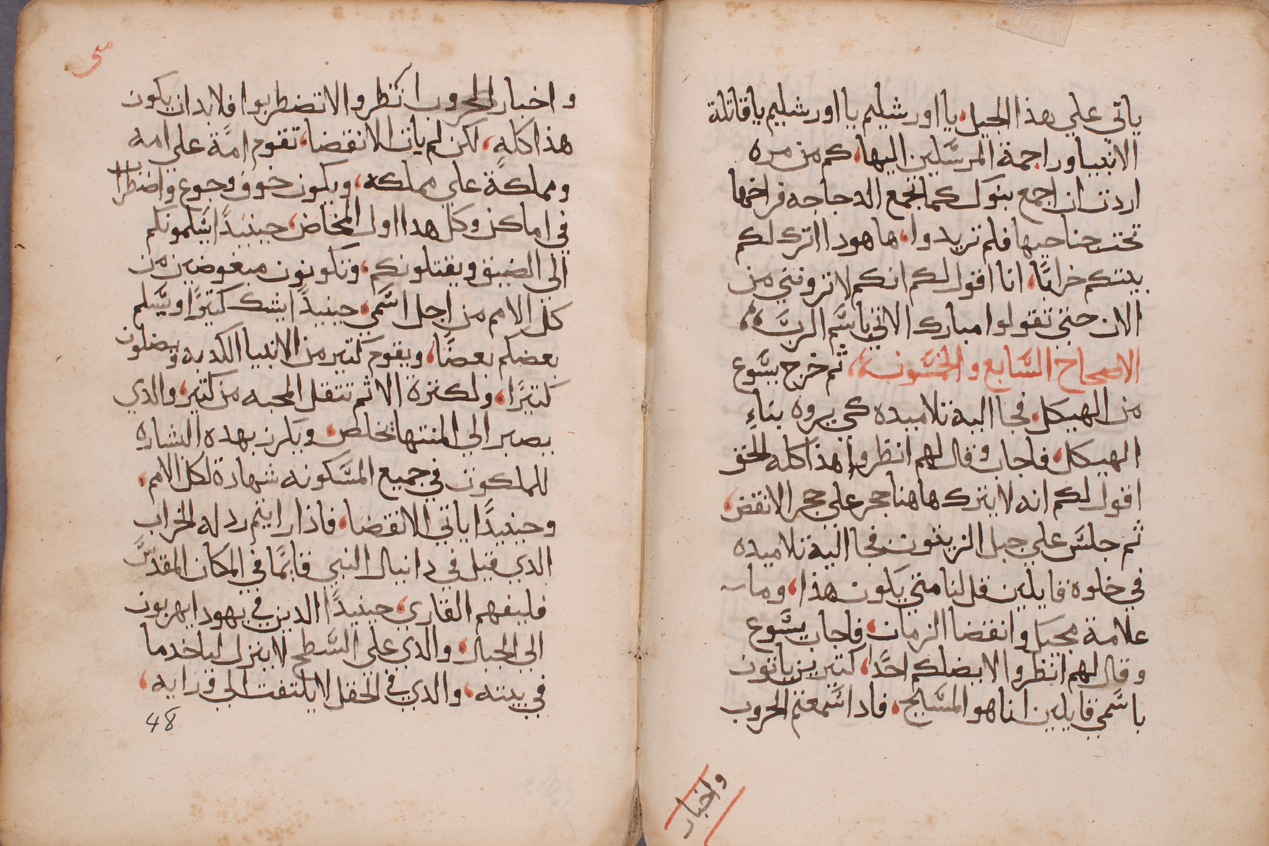 ياتي على هذا الجيل، يا اورشليم يا اورشليم يا قاتلة
الانبيا وراجمة المرسلين اليها، كم من مره
اردت ان اجمع بنوك كما تجمع الدجاجه فراخها
تحت جناحيها فلم تريدوا، ها هوذا اترك لكم
بيتكم خرابًا، انا اقول لكم انكم لا ترونني من
الان حتى تقولوا مبارك الاتي باسم الرب،
الاصحاح السابع والخمسون، ثم خرج يسوع
من الهيكل، فجا اليه تلاميده كي يروه بناءِ
الهيكل، فاجاب وقال لهم انظروا هذا كله الحق
اقول لكم انه لا يترك هاهنا حجر على حجر الا نقض،
ثم جلس على جبل الزيتون، فجا اليه تلاميده
في خلوه قايلين قل لنا متى يكون هذا، وما
علامة مجيك وانقضا الزمان، فاجاب يسوع
وقال لهم انظروا لا يضلكم احدًا، كتيرين ياتون
باسمي قايلين انا هو المسيح، فادا سمعتم الحروب
واخبار
متى
واخبار الحروب انظروا لا تضطربوا فلابد ان يكون
هذا كله، لكن لم يات الانقضا، تقوم امة على امه
ومملكة على مملكه، ويكون خوف وجوع واضطراب
في اماكن وكل هدا اول المخاض، حينيدًا يسلمونكم
الى الضيق ويقتلونكم، وتكونون مبغوضين من
كل الامم من اجل اسمي، حينيدًا يشك كتيرًا ويسلم
بعضكم بعضًا، ويقوم كتير من الانبيا الكدبه ويضلون
كتيرًا، ولكترة الاثم تنتقل المحبه من كتير، والدي
يصبر الى المنتها يخلص، ويكرز بهده البشاره
للملكوت في جميع المسكونه شهادة لكل الامم،
وحينيدًا ياتي الانقضا، فاذا رايتم ردله الخراب
الدي قيل في دانيال النبي قايمًا في المكان المقدس
فليفهم القاري، حينيدًا الدين في يهودا يهربون
الى الجبال، والدي على السطح لا ينزل لياخد ما
في بيته، والدي في الحقل لا يلتفت الى ورايه،
48